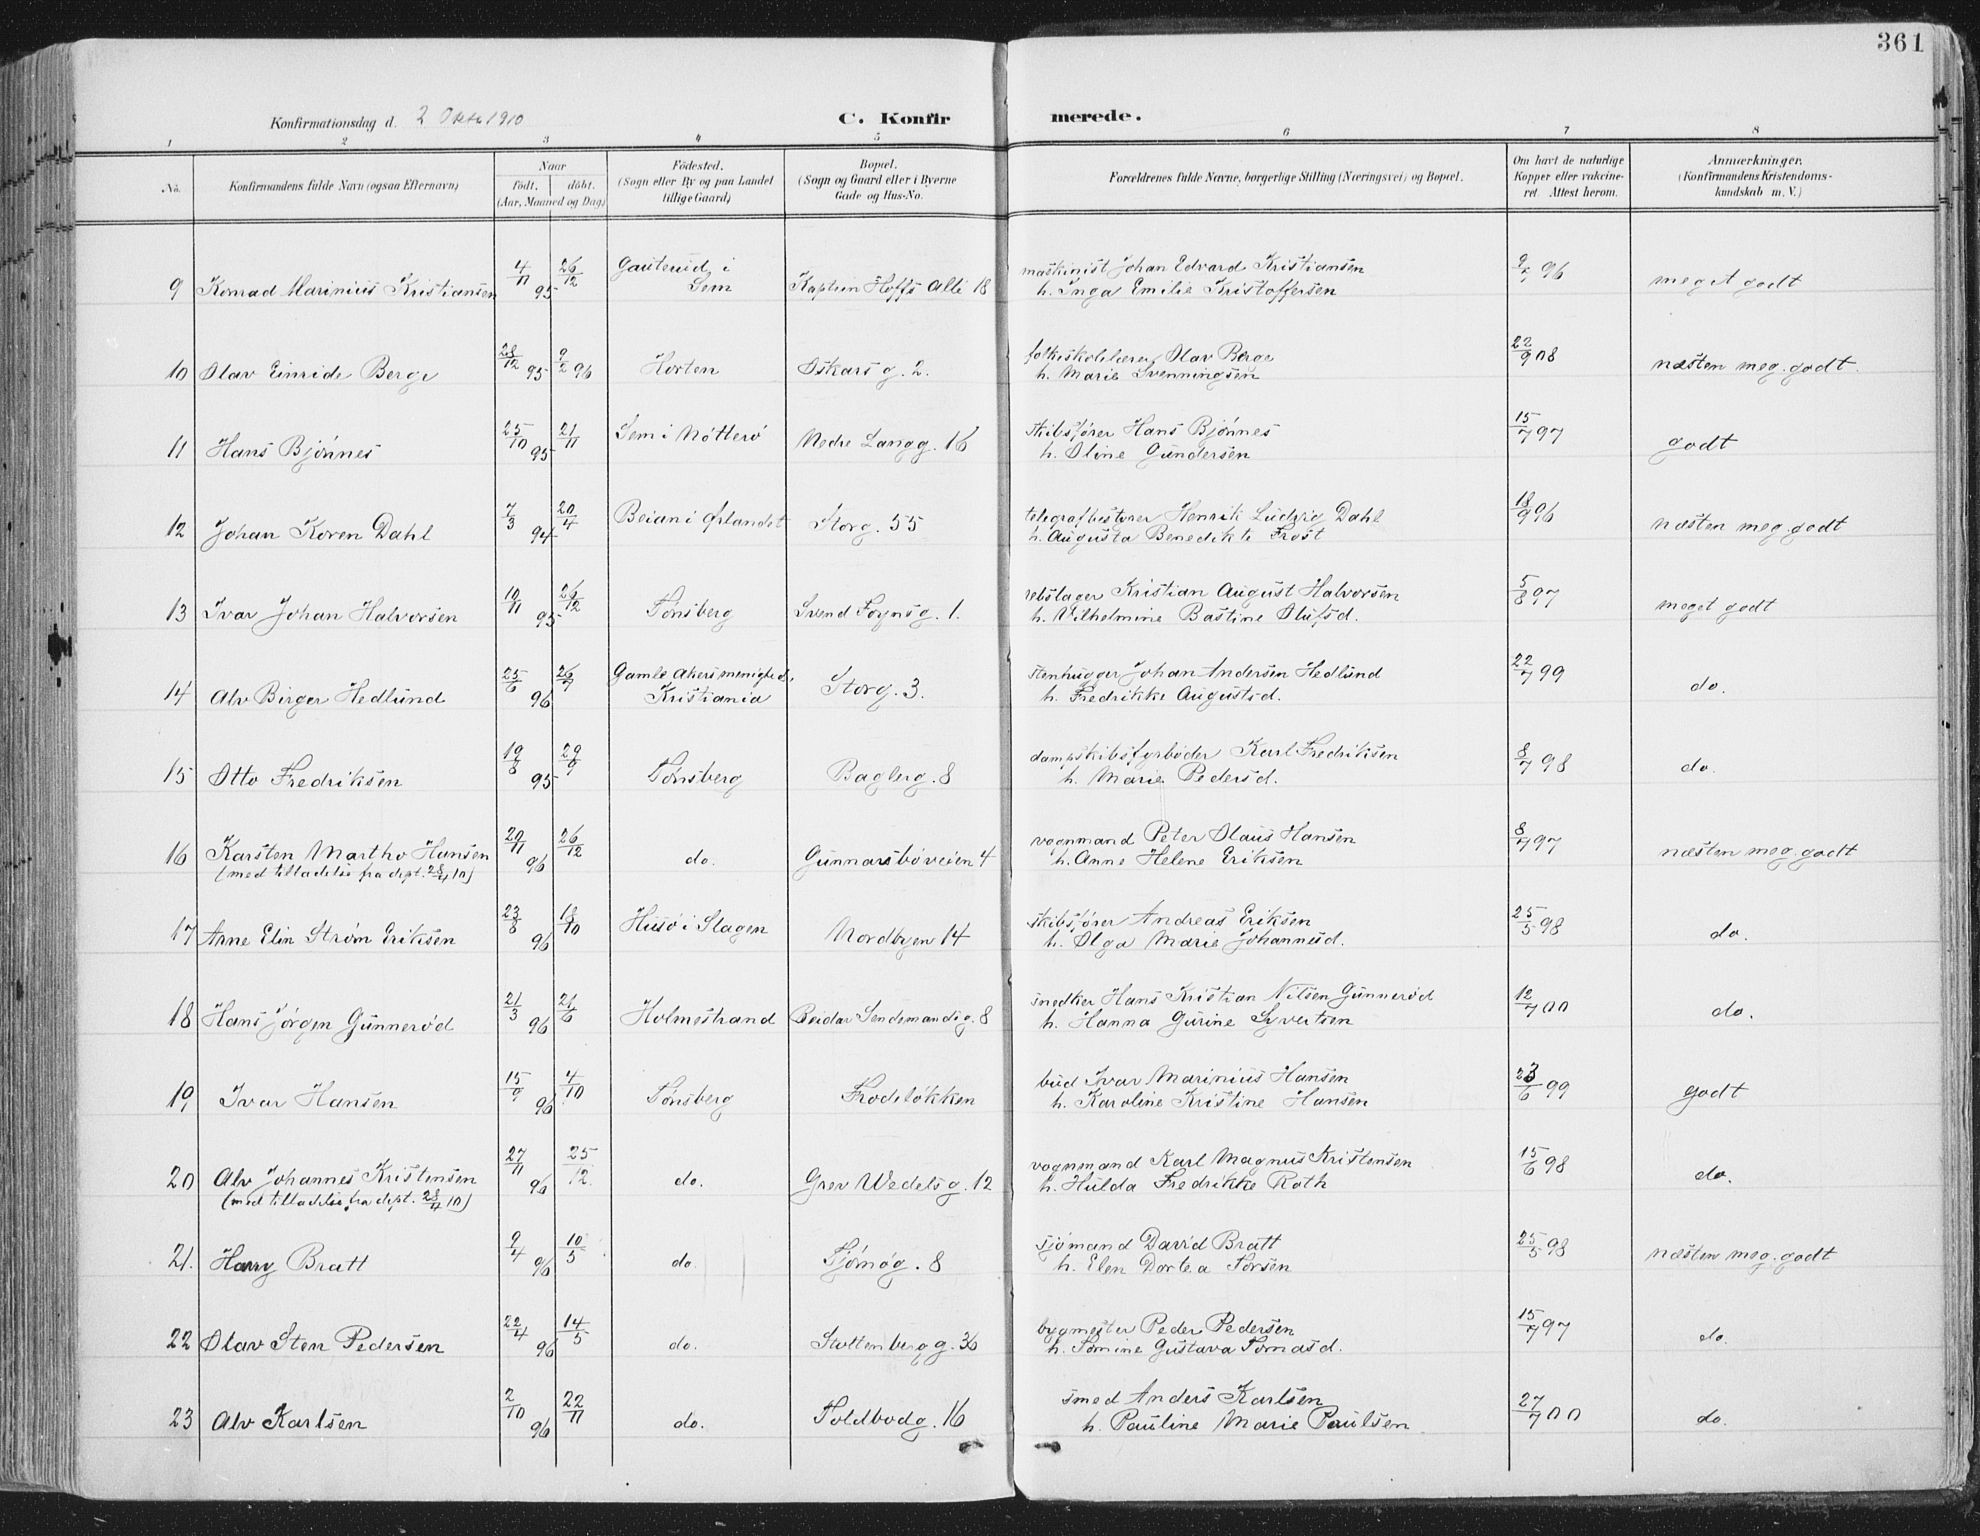 361
Konfirmationsdag d. 2 Oktr 1910
C. Konfirmerede.
1 2 3 4 5 6 7 8
No. | Konfirmandens fulde Navn (ogsaa Efternavn) | Naar födt. döbt. (Aar, Maaned og Dag) | Födested. (Sogn eller By og paa Landet tillige Gaard) | Bopæl. (Sogn og Gaard eller i Byerne Gade og Hus-No. | Forældrenes fulde Navne, borgerlige Stilling (Næringsvei) og Bopæl. | Om havt de naturlige Kopper eller vakcineret. Attest herom. | Anmærkninger. (Konfirmandens Kristendomskundskab m. V.)
9 Konrad Marinius Kristiansen 4/11 95 26/12 Gauterud i Sem Kaptein Hoffs Allé 18 maskinist Johan Edvard Kristiansen
h. Inga Emilie Kristoffersen 9/7 96 meget godt
10 Olav Einride Berge 28/12 95 9/2 96 Horten Oskars g. 2. folkeskolelærer Olav Berge
h. Marie Svenningsen 22/9 08 næsten meg. godt.
11 Hans Bjönnes 25/10 95 21/11 Sem i Nötterö Nedre Langg. 16 skibsförer Hans Bjönnes
h. Oline Gundersen 15/7 97 godt
12 Johan Koren Dahl 7/3 94 20/4 Beian i Ørlandet Storg. 55 telegrafbestyrer Henrik Ludvig Dahl
h. Augusta Benedikte Frost 18/9 96 næsten meg. godt
13 Ivar Johan Halvorsen 10/11 95 26/12 Tönsberg Svend Foynsg. 1. rebslager Kristian August Halvorsen
h. Vilhelmine Bastine Olufsd. 5/8 97 meget godt
14 Alv Birger Hedlund 25/6 96 26/7 Gamle Akers menighed, Kristiania Storg. 3. stenhugger Johan Andersen Hedlund
h. Fredrikke Augustsd. 22/7 99 do.
15 Otto Fredriksen 19/8 95 29/9 Tönsberg Baglerg. 8 dampskibsfyrböder Karl Fredriksen
h. Marie Pedersd. 8/7 98 do.
16 Karsten Martho Hansen 20/11 96 26/12 do. Gunnarsböveien 4 vognmand Peter Olaus Hansen
(med tilladelse fra dept. 28/4 10) h. Anne Helene Eriksen 8/7 97 næsten meg. godt
17 Arne Elin Strøm Eriksen 23/8 96 18/10 Husö i Slagen Nordbyen 14 skibsförer Andreas Eriksen
h. Olga Marie Johannesd. 25/5 98 do.
18 Hans Jörgen Gunneröd 21/3 96 21/6 Holmestrand Reidar Sendemandsg. 8 snedker Hans Kristian Nilsen Gunneröd
h. Hanna Gurine Syvertsen 12/7 00 do.
19 Ivar Hansen 15/9 96 4/10 Tönsberg Frodelökken bud Ivar Marinius Hansen
h. Karoline Kristine Hansen 23/6 99 godt
20 Alv Johannes Kristensen 27/11 96 25/12. do. Grev Wedelsg. 12 vognmand Karl Magnus Kristensen
(med tilladelse fra dept. 28/4 10) h. Hulda Fredrikke Roth 15/6 98 do.
21. Harry Bratt 9/4 96 10/5 do. Tjömög. 8 sjömand David Bratt
h. Elen Dortea Torsen 25/5 98 næsten meg. godt
22 Olav Sten Pedersen 22/4 96 14/5 do. Stoltenbergg. 36 bygmester Peder Pedersen
h. Tomine Gustava Tomasd. 15/7 97 do.
23 Alv Karlsen 2/10 96 22/11 do. Toldbodg. 16 smed Anders Karlsen
h. Pauline Marie Paulsen 27/7 00 do.